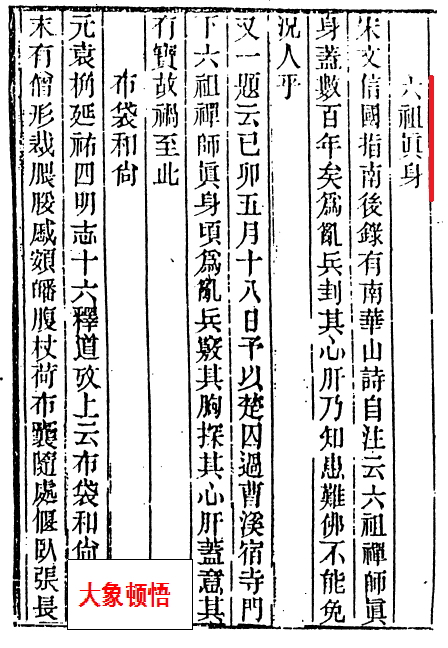 六祖眞身
宋文信國指南後錄有南華山詩自注云六祖禪師眞
身蓋數百年矣爲亂兵刲其心肝乃知患難佛不能免
況人乎
又一題云己卯五月十八日予以楚囚過曹溪宿寺門
下六祖禪師眞身頃爲亂兵竅其胸探其心肝蓋意其
有寶故禍至此
布袋和尙
元袁桷延祐四明志十六釋道攷上云布袋和尙
末有僧形裁腲脮蹙頞皤腹杖荷布囊隨處偃臥張長
大象顿悟